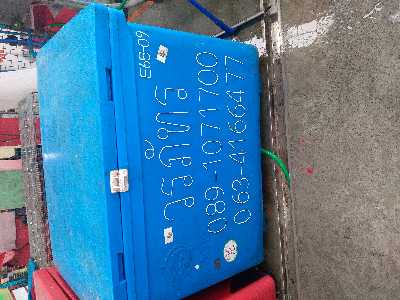 E6E-09
วรภัทร
089-1071700
063-4166477